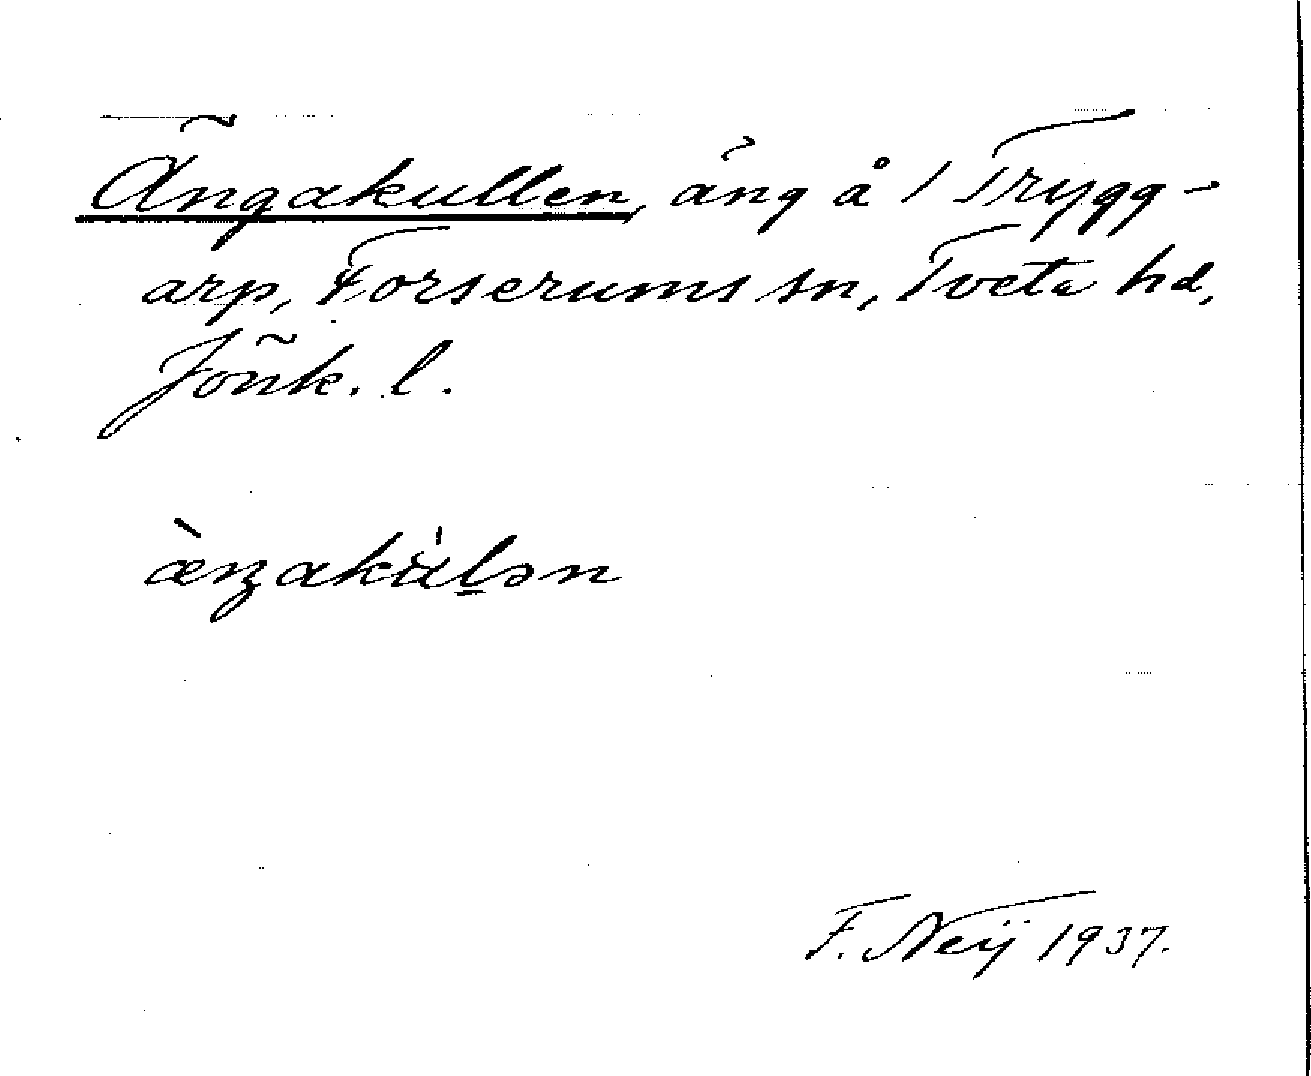 Ängakullen, äng å 1 Trygg-
arp, Forserums sn, Tveta hd,
Jönk. l.
æ̀ŋakùḷən
F. Neij 1937.